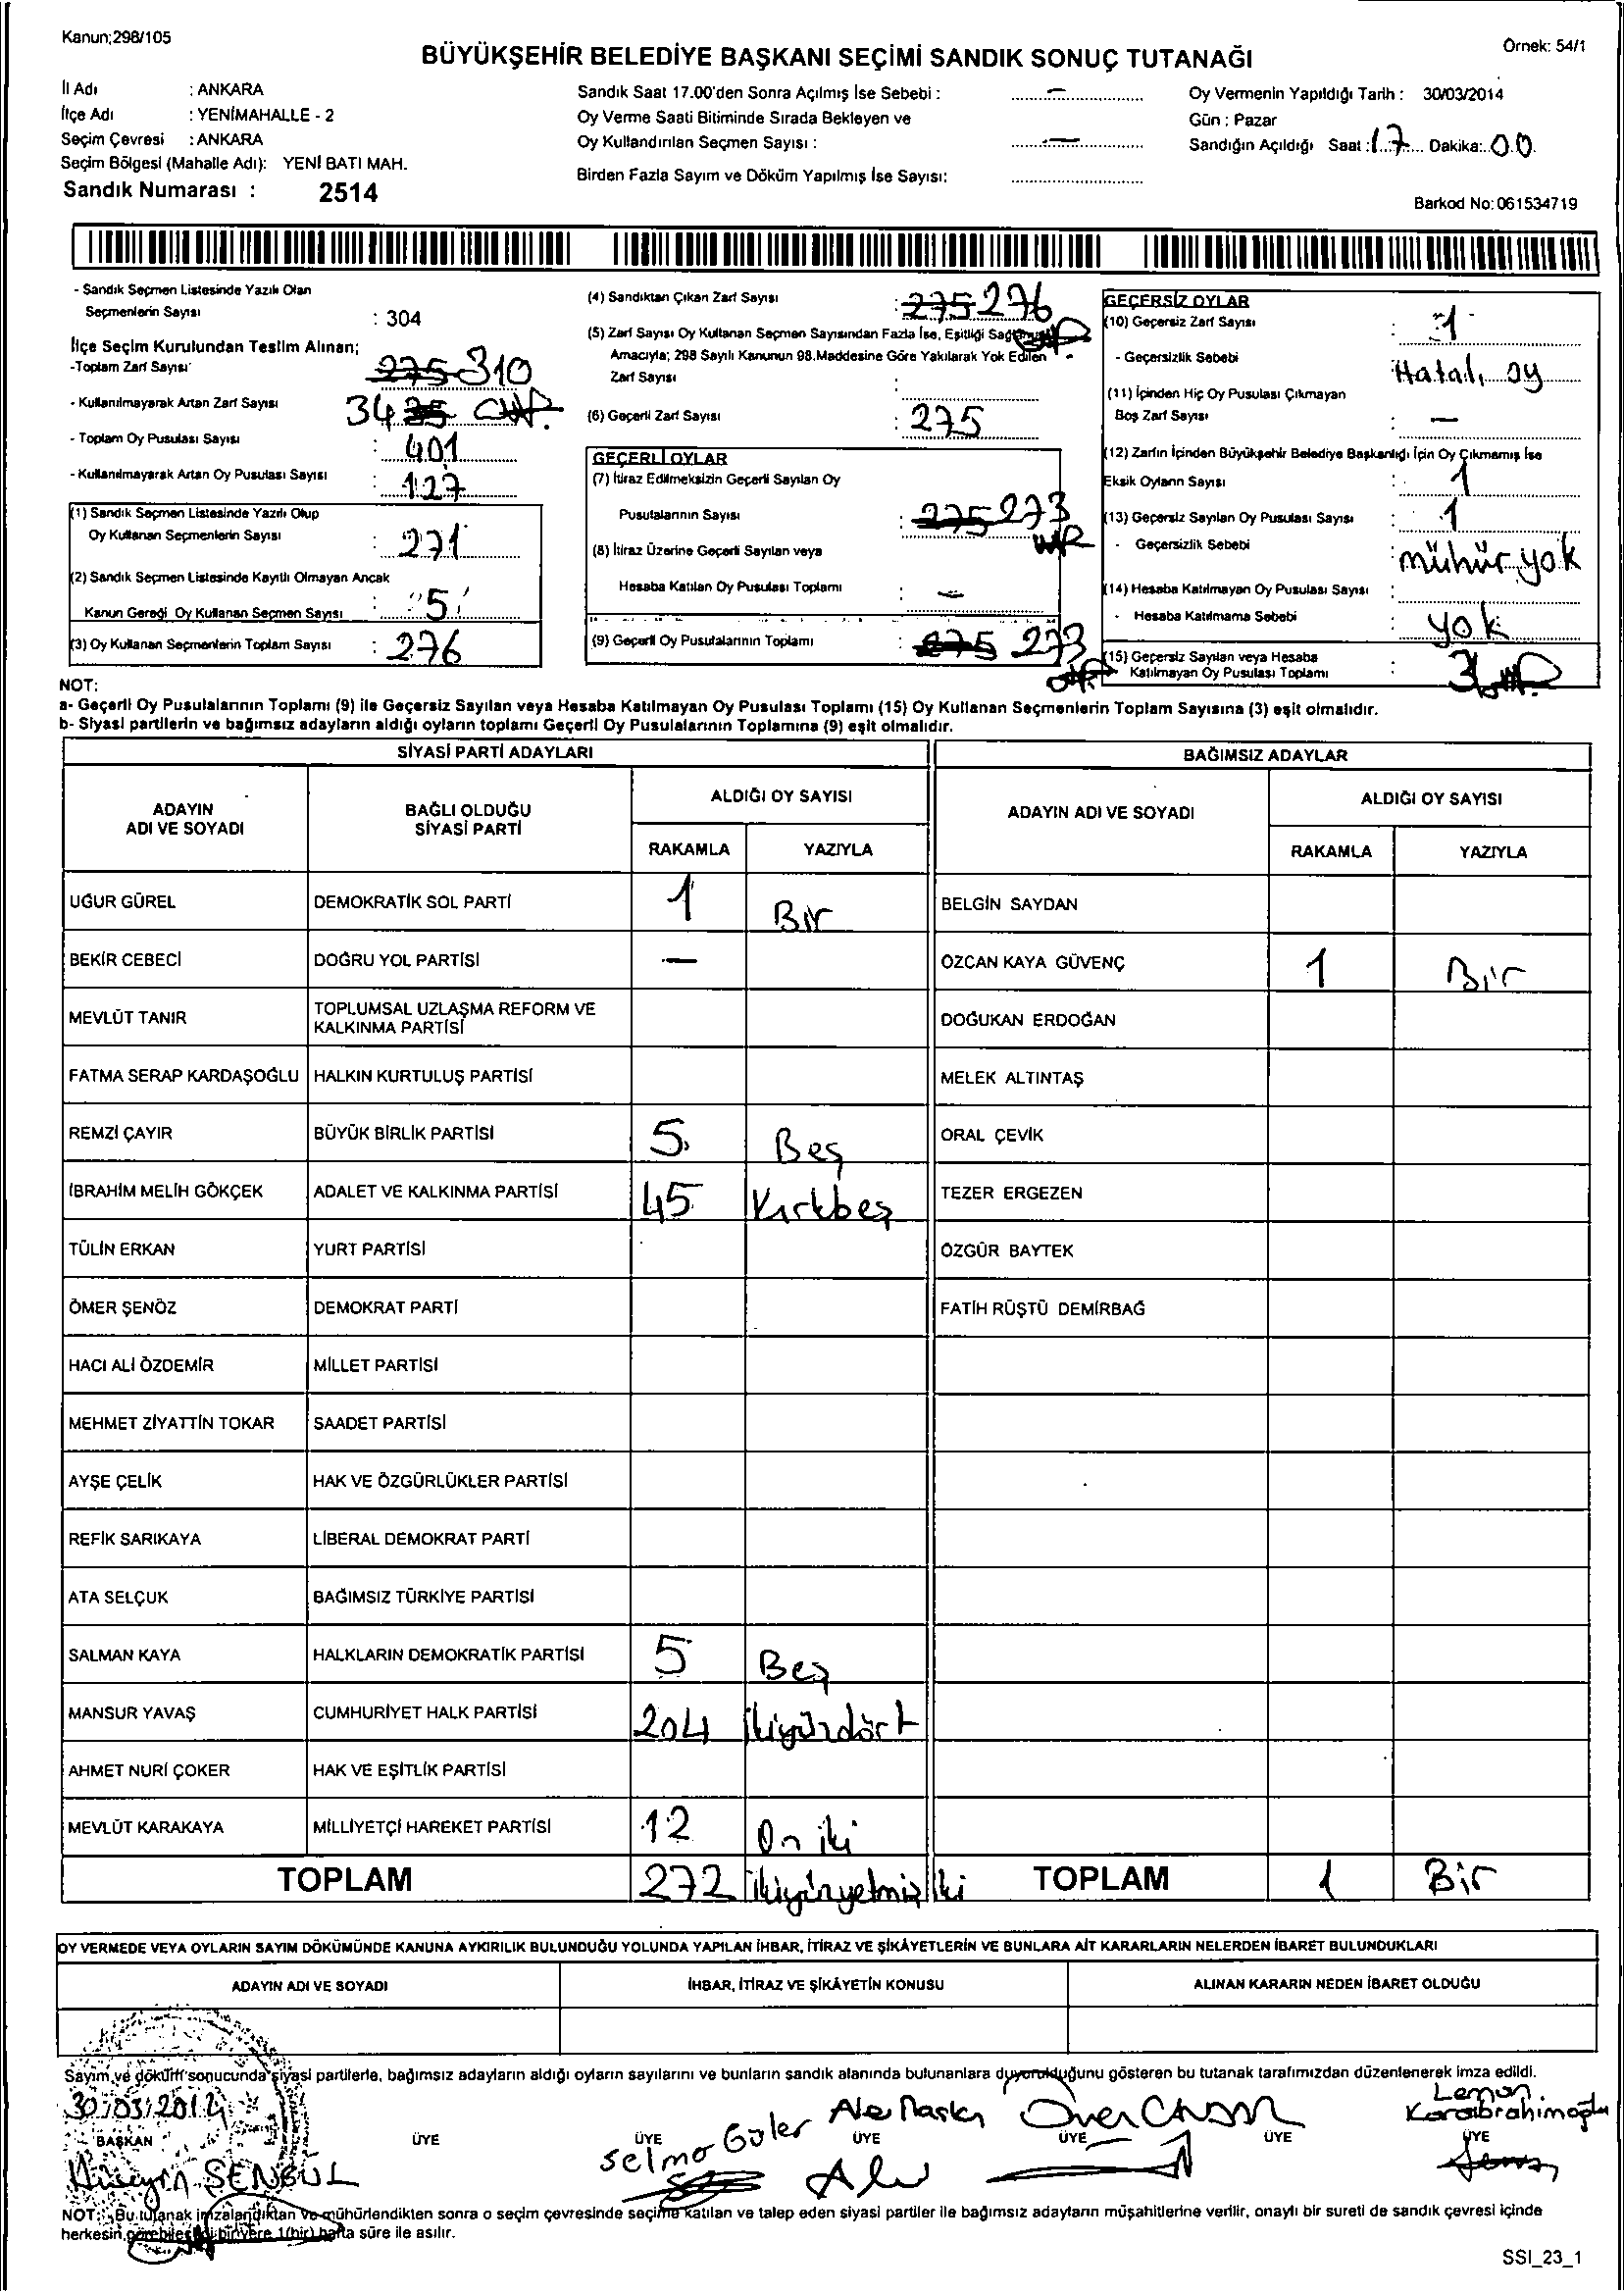 Kanun;298/105
Örnek: 54/1
BÜYÜKŞEHİR BELEDİYE BAŞKANI SEÇİMİ SANDIK SONUÇ TUTANAĞI
İl Adı : ANKARA
İlçe Adı : YENİMAHALLE - 2
Seçim Çevresi : ANKARA
Seçim Bölgesi (Mahalle Adı): YENİ BATI MAH.
Sandık Numarası : 2514
Sandık Saat 17.00'den Sonra Açılmış İse Sebebi : —
Oy Verme Saati Bitiminde Sırada Bekleyen ve
Oy Kullandırılan Seçmen Sayısı : —
Birden Fazla Sayım ve Döküm Yapılmış İse Sayısı:
Oy Vermenin Yapıldığı Tarih : 30/03/2014
Gün : Pazar
Sandığın Açıldığı Saat : 17 Dakika: 00
Barkod No: 061534719
- Sandık Seçmen Listesinde Yazılı Olan
Seçmenlerin Sayısı : 304
İlçe Seçim Kurulundan Teslim Alınan;
-Toplam Zarf Sayısı 275 310
- Kullanılmayarak Artan Zarf Sayısı 34
- Toplam Oy Pusulası Sayısı : 401
- Kullanılmayarak Artan Oy Pusulası Sayısı : 127
(1) Sandık Seçmen Listesinde Yazılı Olup
Oy Kullanan Seçmenlerin Sayısı : 271
(2) Sandık Seçmen Listesinde Kayıtlı Olmayan Ancak
Kanun Gereği Oy Kullanan Seçmen Sayısı : 5
(3) Oy Kullanan Seçmenlerin Toplam Sayısı : 276
(4) Sandıktan Çıkan Zarf Sayısı : 275 276
(5) Zarf Sayısı Oy Kullanan Seçmen Sayısından Fazla İse, Eşitliği
Amacıyla; 298 Sayılı Kanunun 98.Maddesine Göre Yakılarak Yok Edilen
Zarf Sayısı :
(6) Geçerli Zarf Sayısı : 275
GEÇERLİ OYLAR
(7) İtiraz Edilmeksizin Geçerli Sayılan Oy
Pusulalarının Sayısı : 275 273
(8) İtiraz Üzerine Geçerli Sayılan veya
Hesaba Katılan Oy Pusulası Toplamı : —
(9) Geçerli Oy Pusulalarının Toplamı : 275 273
GEÇERSİZ OYLAR
(10) Geçersiz Zarf Sayısı : 1
- Geçersizlik Sebebi : Hatalı oy
(11) İçinden Hiç Oy Pusulası Çıkmayan
Boş Zarf Sayısı : —
(12) Zarfın İçinden Büyükşehir Belediye Başkanlığı İçin Oy Çıkmamış İse
Eksik Oyların Sayısı : 1
(13) Geçersiz Sayılan Oy Pusulası Sayısı : 1
- Geçersizlik Sebebi : mühür yok
(14) Hesaba Katılmayan Oy Pusulası Sayısı :
- Hesaba Katılmama Sebebi : yok
(15) Geçersiz Sayılan veya Hesaba
Katılmayan Oy Pusulası Toplamı : 3
NOT:
a- Geçerli Oy Pusulalarının Toplamı (9) ile Geçersiz Sayılan veya Hesaba Katılmayan Oy Pusulası Toplamı (15) Oy Kullanan Seçmenlerin Toplam Sayısına (3) eşit olmalıdır.
b- Siyasi partilerin ve bağımsız adayların aldığı oyların toplamı Geçerli Oy Pusulalarının Toplamına (9) eşit olmalıdır.
SİYASİ PARTİ ADAYLARI
ADAYIN ADI VE SOYADI
BAĞLI OLDUĞU SİYASİ PARTİ
ALDIĞI OY SAYISI
RAKAMLA YAZIYLA
UĞUR GÜREL DEMOKRATİK SOL PARTİ 1 Bir
BEKİR CEBECİ DOĞRU YOL PARTİSİ —
MEVLÜT TANIR TOPLUMSAL UZLAŞMA REFORM VE
KALKINMA PARTİSİ
FATMA SERAP KARDAŞOĞLU HALKIN KURTULUŞ PARTİSİ
REMZİ ÇAYIR BÜYÜK BİRLİK PARTİSİ 5 Beş
İBRAHİM MELİH GÖKÇEK ADALET VE KALKINMA PARTİSİ 45 Kırkbeş
TÜLİN ERKAN YURT PARTİSİ
ÖMER ŞENÖZ DEMOKRAT PARTİ
HACI ALİ ÖZDEMİR MİLLET PARTİSİ
MEHMET ZİYATTİN TOKAR SAADET PARTİSİ
AYŞE ÇELİK HAK VE ÖZGÜRLÜKLER PARTİSİ
REFİK SARIKAYA LİBERAL DEMOKRAT PARTİ
ATA SELÇUK BAĞIMSIZ TÜRKİYE PARTİSİ
SALMAN KAYA HALKLARIN DEMOKRATİK PARTİSİ 5 Beş
MANSUR YAVAŞ CUMHURİYET HALK PARTİSİ 204 İkiyüzdört
AHMET NURİ ÇOKER HAK VE EŞİTLİK PARTİSİ
MEVLÜT KARAKAYA MİLLİYETÇİ HAREKET PARTİSİ 12 On iki
TOPLAM 272 ikiyüzyetmiş iki
BAĞIMSIZ ADAYLAR
ADAYIN ADI VE SOYADI
ALDIĞI OY SAYISI
RAKAMLA YAZIYLA
BELGİN SAYDAN
ÖZCAN KAYA GÜVENÇ 1 Bir
DOĞUKAN ERDOĞAN
MELEK ALTINTAŞ
ORAL ÇEVİK
TEZER ERGEZEN
ÖZGÜR BAYTEK
FATİH RÜŞTÜ DEMİRBAĞ
TOPLAM 1 Bir
OY VERMEDE VEYA OYLARIN SAYIM DÖKÜMÜNDE KANUNA AYKIRILIK BULUNDUĞU YOLUNDA YAPILAN İHBAR, İTİRAZ VE ŞİKÂYETLERİN VE BUNLARA AİT KARARLARIN NELERDEN İBARET BULUNDUKLARI
ADAYIN ADI VE SOYADI İHBAR, İTİRAZ VE ŞİKÂYETİN KONUSU ALINAN KARARIN NEDEN İBARET OLDUĞU
Sayım ve döküm sonucunda siyasi partilerle, bağımsız adayların aldığı oyların sayılarını ve bunların sandık alanında bulunanlara duyurulduğunu gösteren bu tutanak tarafımızdan düzenlenerek imza edildi.
30/03/2014
BAŞKAN ÜYE ÜYE ÜYE ÜYE ÜYE ÜYE
Hüseyin ŞENGÜL
Selma Güler
Leman Karaibrahimoğlu
NOT: Bu tutanak imzalandıktan ve mühürlendikten sonra o seçim çevresinde seçime katılan ve talep eden siyasi partiler ile bağımsız adayların müşahitlerine verilir, onaylı bir sureti de sandık çevresi içinde
herkesin görebileceği bir yere 1(bir) hafta süre ile asılır.
SSI_23_1